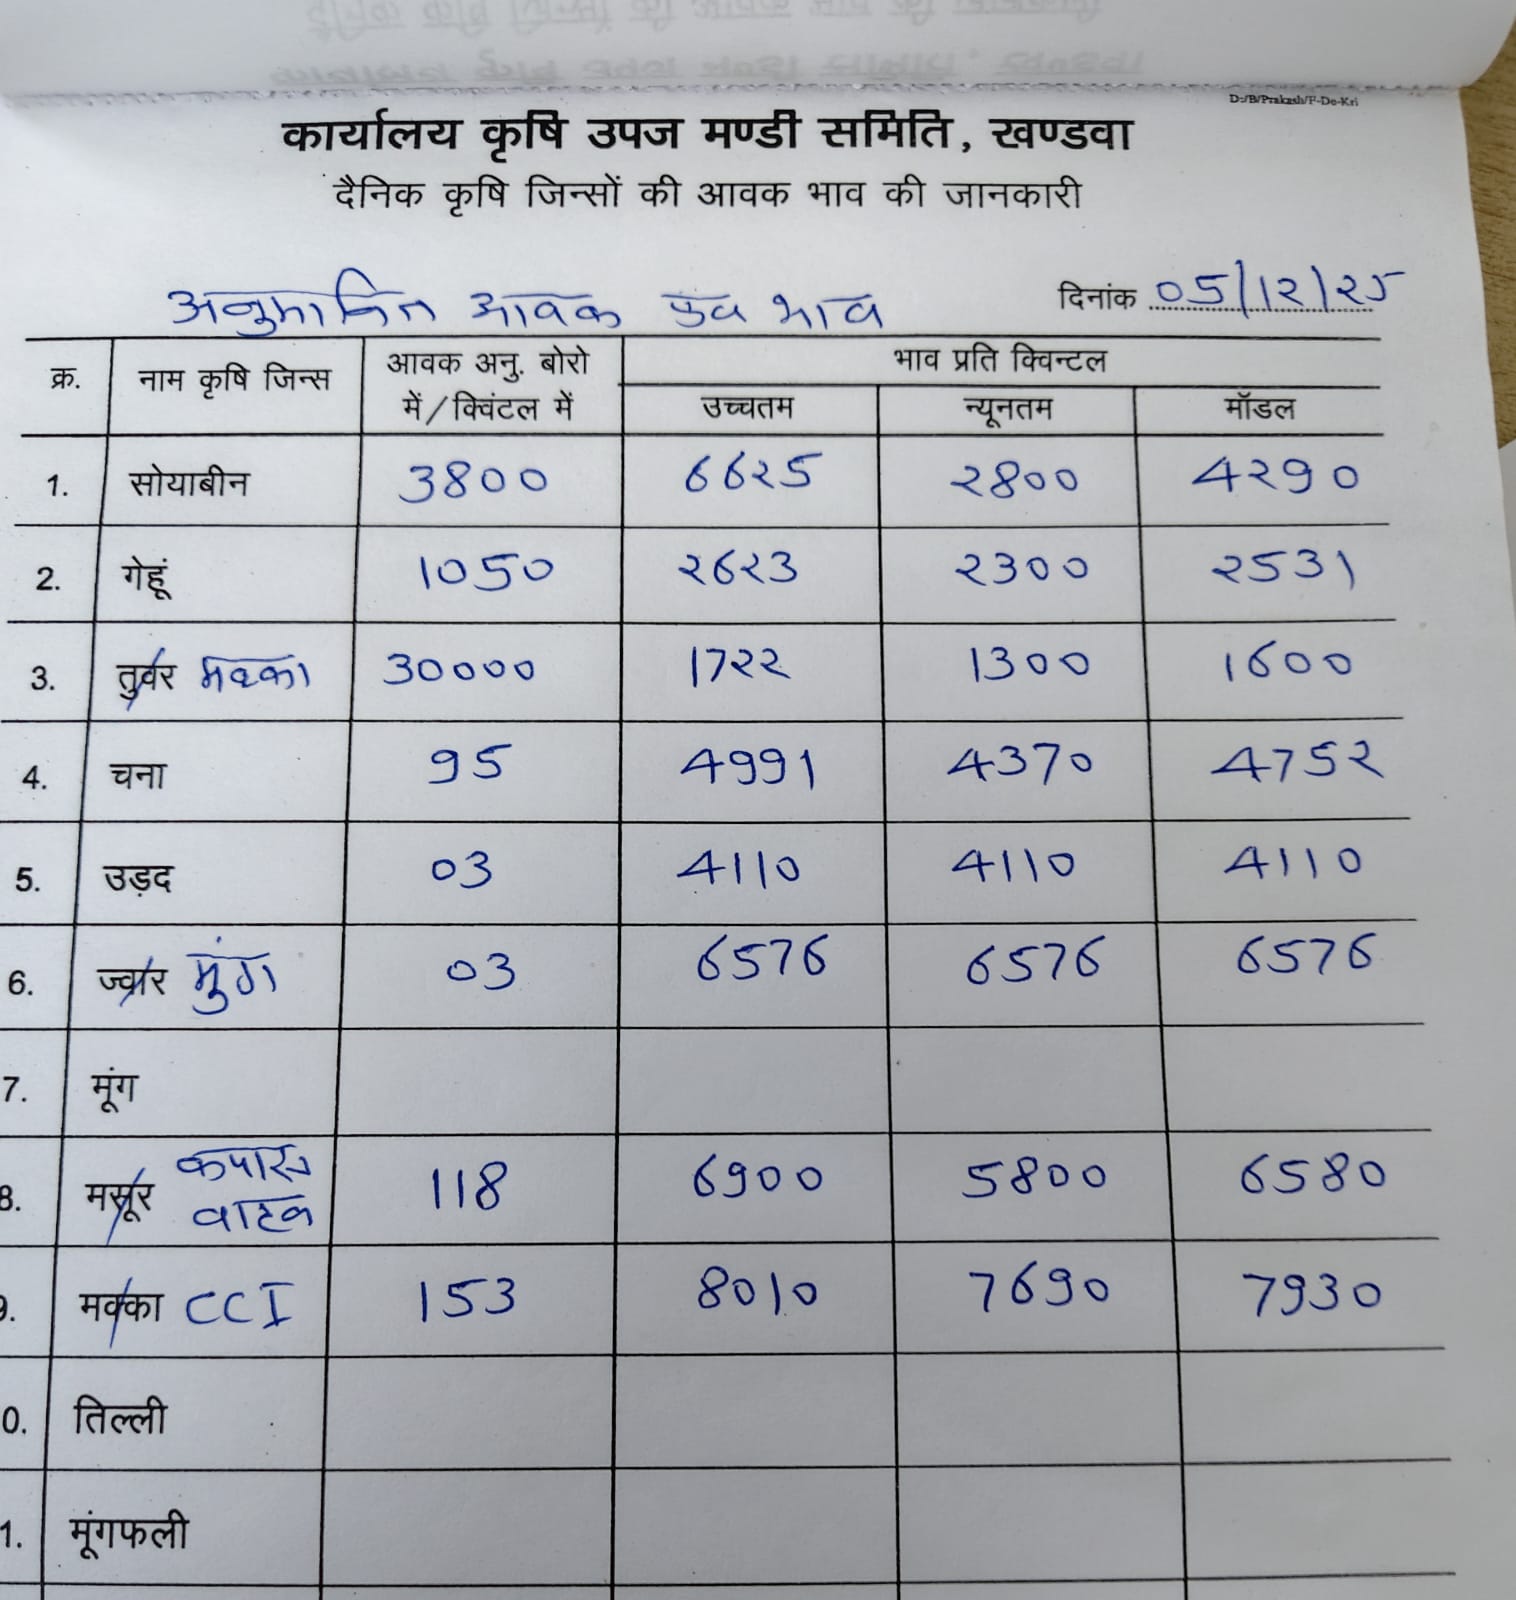 D:/B/Prakash/F-De-Kri
कार्यालय कृषि उपज मण्डी समिति, खण्डवा
दैनिक कृषि जिन्सों की आवक भाव की जानकारी
अनुमानित आवक एवं भाव दिनांक 05/12/25
क्र. नाम कृषि जिन्स आवक अनु. बोरो में/क्विंटल में भाव प्रति क्विन्टल
उच्चतम न्यूनतम मॉडल
1. सोयाबीन 3800 6625 2800 4290
2. गेहूं 1050 2623 2300 2531
3. तुवर मक्का 30000 1722 1300 1600
4. चना 95 4991 4370 4752
5. उड़द 03 4110 4110 4110
6. ज्वार मुंग 03 6576 6576 6576
7. मूंग
8. मसूर कपास वाहन 118 6900 5800 6580
9. मक्का CCI 153 8010 7690 7930
0. तिल्ली
1. मूंगफली